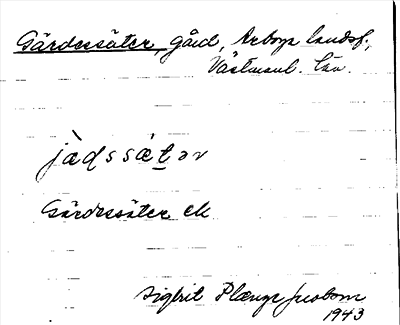 Gärdessäter, gård, Arboga landsf.,
Västmanl. län.
jàḍssät̲ər
Gärdessäter ek
Sigbrit Plænge Jacobson
1943